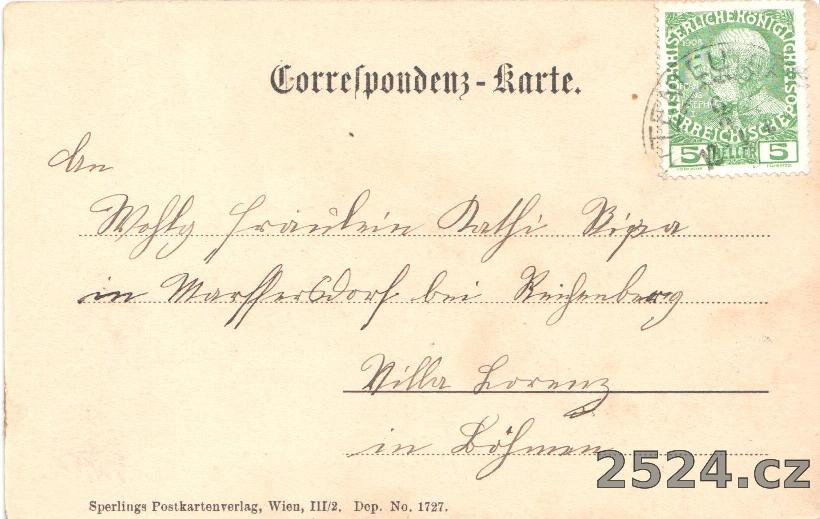 Correspondenz-Karte.
KAISERLICHE KÖNIGLICHE
ÖSTERREICHISCHE POST
1908
5 HELLER 5
An
Wohlg Fräulein Kathi
in Maffersdorf bei Reichenberg
Villa Lorenz
in Böhmen
2524.cz
Sperlings Postkartenverlag, Wien, III/2. Dep. No. 1727.